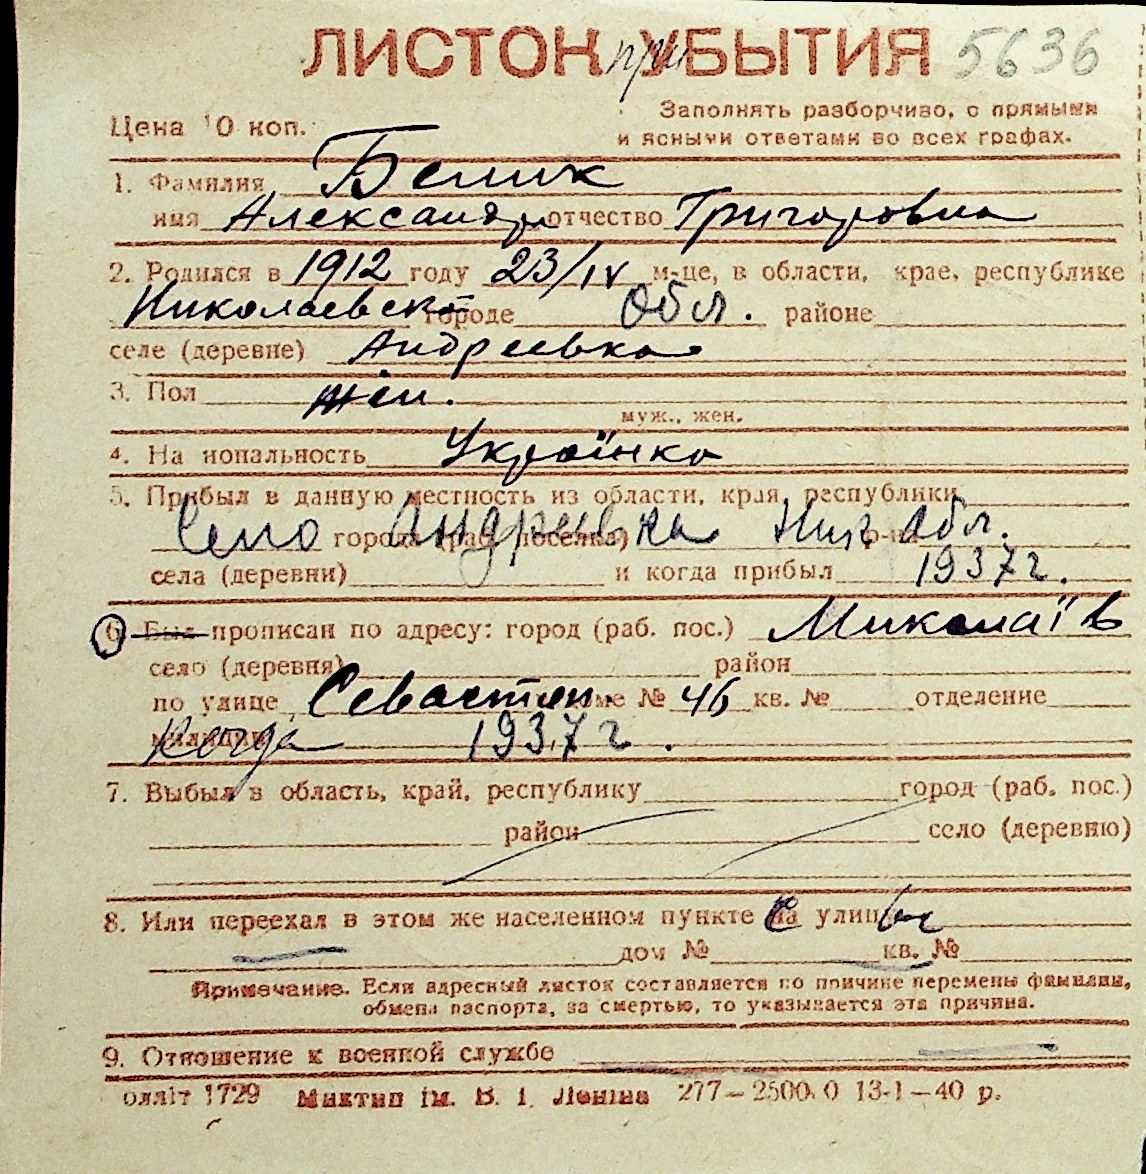 ЛИСТОК при УБЫТИЯ 5636
Цена 10 коп.
Заполнять разборчиво, с прямыми
и ясными ответами во всех графах.
1. Фамилия Белик
имя Александра отчество Григоровна
2. Родился в 1912 году 23/IV м-це, в области, крае, республике
Николаевской городе Обл. районе
селе (деревне) Андреевка
3. Пол жен.
муж., жен.
4. На иональность Українка
5. Прибыл в данную местность из области, края, республики
Село города (раб. поселка) Андреевка Ник. р-на Обл.
села (деревни) и когда прибыл 1937 г.
6 Был прописан по адресу: город (раб. пос.) Миколаїв
село (деревня) район
по улице Севастоп. доме № 46 кв. № отделение
милиции Когда 1937 г.
7. Выбыл в область, край, республику город (раб. пос.)
район село (деревню)
8. Или переехал в этом же населенном пункте на улицу
дом № кв. №
Примечание. Если адресный листок составляется по причине перемены фамилии,
обмена паспорта, за смертью, то указывается эта причина.
9. Отношение к военной службе
оллiт 1729 Миктип iм. В. I. Ленiна 277—2500.0 13-1—40 р.